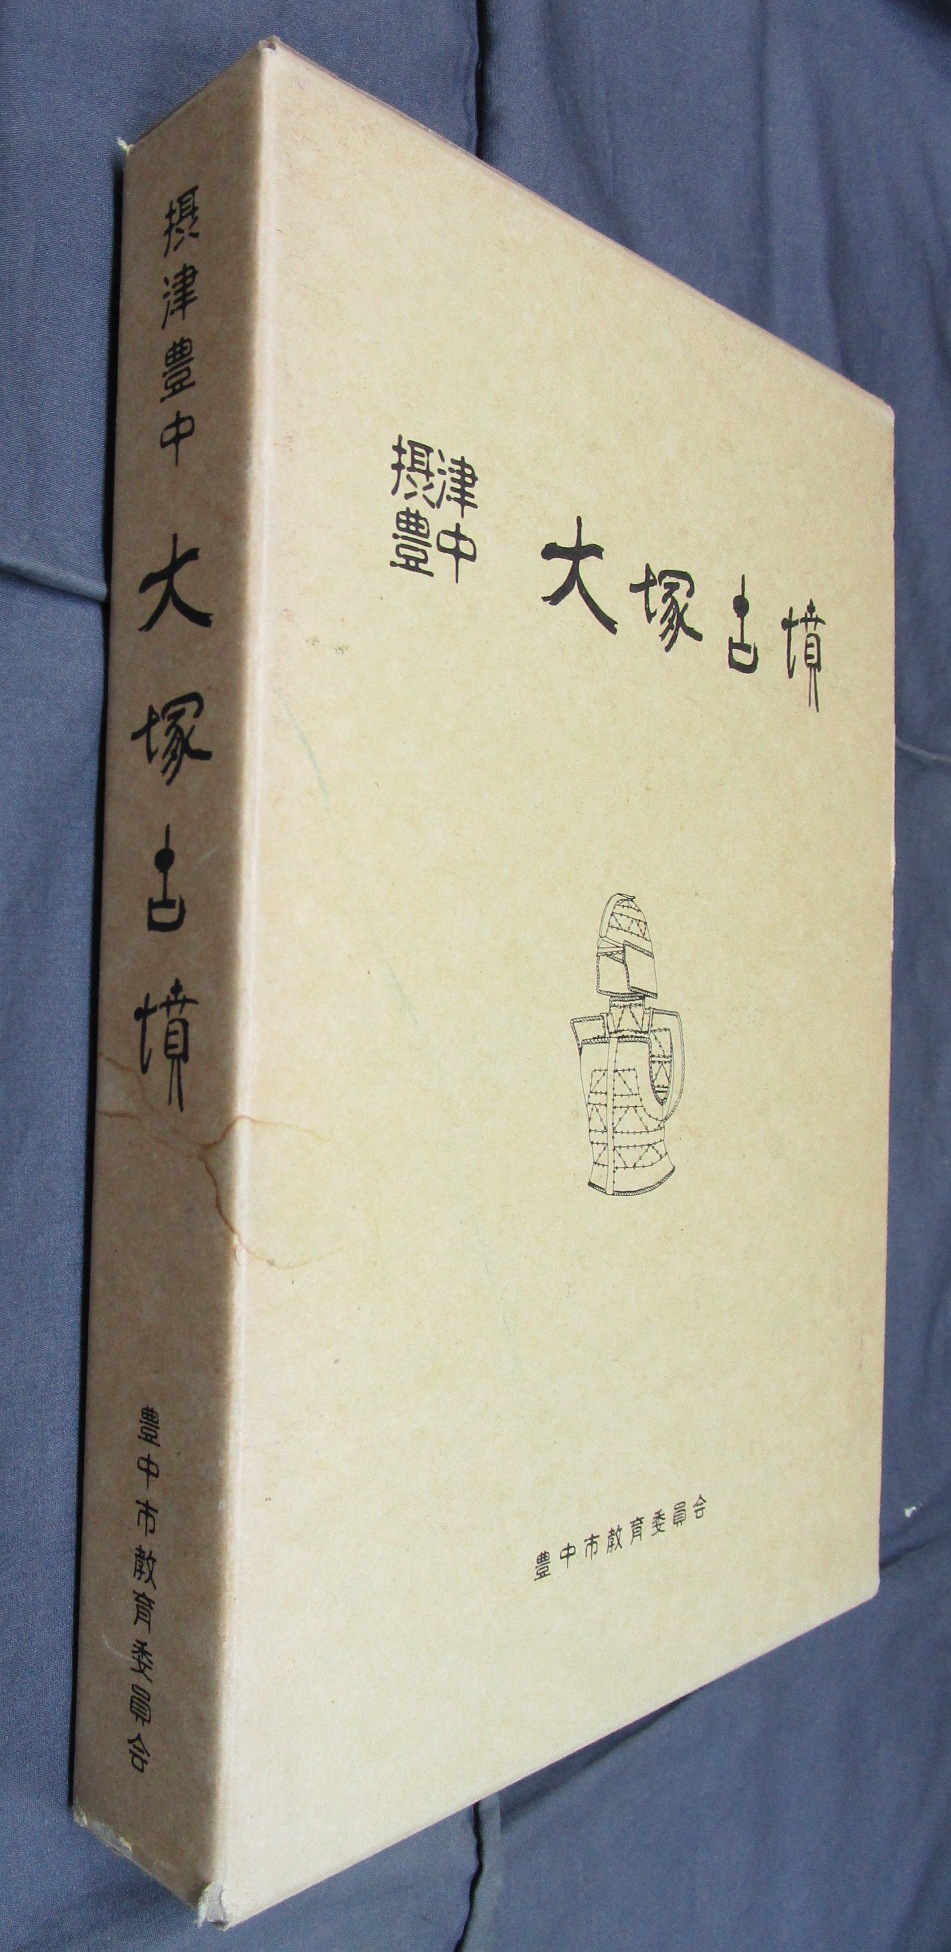 摂津豊中 大塚古墳
豊中市教育委員会
摂津
豊中
大塚古墳
豊中市教育委員会